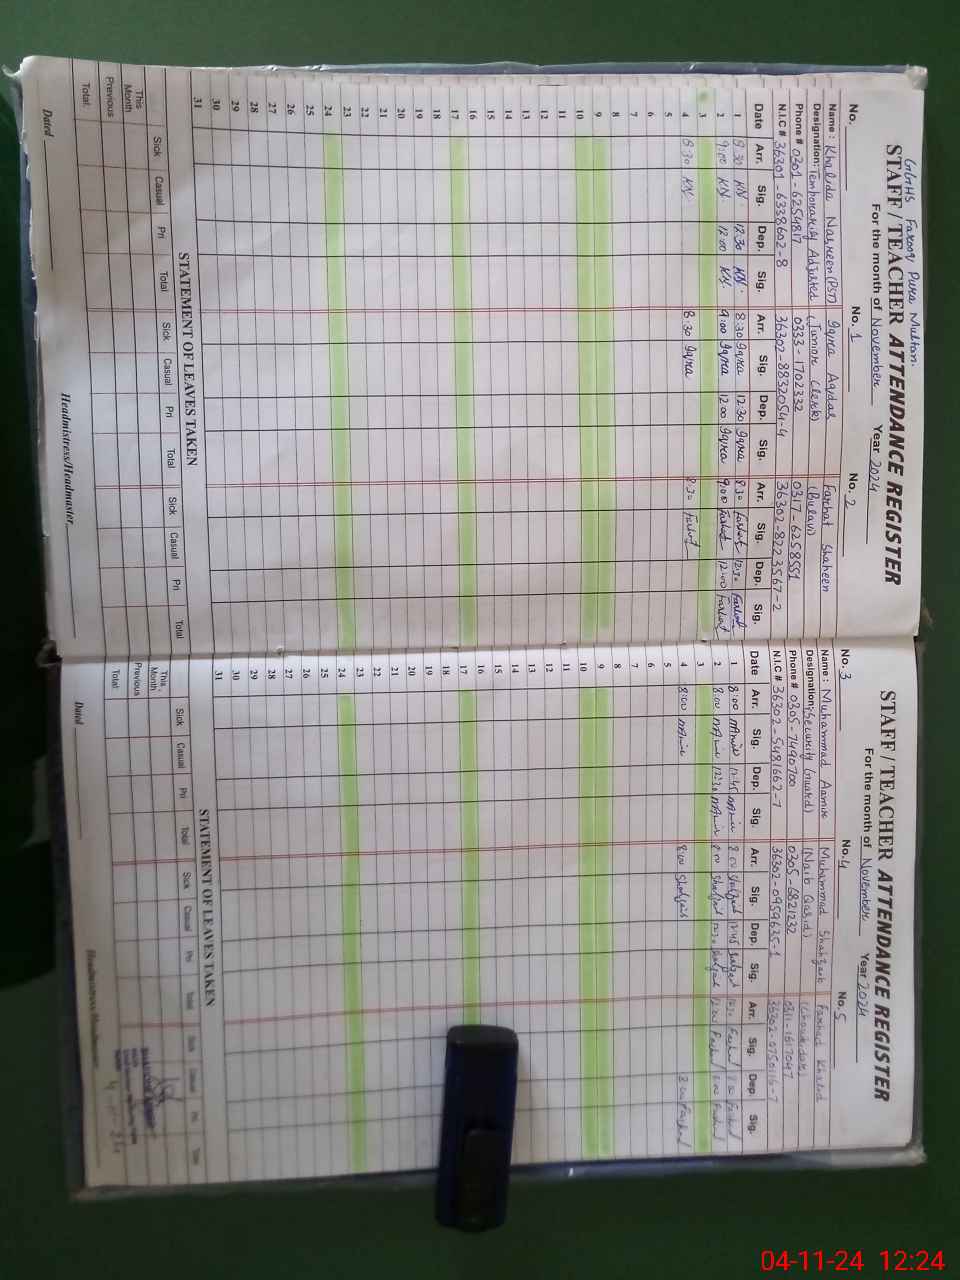 GGHS Farooq Pura Multan.
STAFF / TEACHER ATTENDANCE REGISTER
For the month of November Year 2024
No. No. 1 No. 2
Name : Khalida Nasreen (PST) Iqra Aqdas Farhat Shaheen
Designation: Temporarily Adjusted (Junior Clerk) (Bulavi)
Phone # 0301-6254817 0333-1702332 0317-6258551
N.I.C # 36301-6338602-8 36302-8832054-4 36302-8223567-2
Date Arr. Sig. Dep. Sig. Arr. Sig. Dep. Sig. Arr. Sig. Dep. Sig.
1 8:30 KN. 12:30 KN. 8:30 Iqra 12:30 Iqra 8:30 Farhat 12:30 Farhat
2 9:00 KN. 12:00 KN. 9:00 Iqra 12:00 Iqra 9:00 Farhat 12:00 Farhat
3
4 8:30 KN. 8:30 Iqra 8:30 Farhat
5
6
7
8
9
10
11
12
13
14
15
16
17
18
19
20
21
22
23
24
25
26
27
28
29
30
31
STATEMENT OF LEAVES TAKEN
Sick Casual Pri Total Sick Casual Pri Total Sick Casual Pri Total
This Month
Previous
Total:
Dated Headmistress/Headmaster
STAFF / TEACHER ATTENDANCE REGISTER
For the month of November Year 2024
No. 3 No. 4 No. 5
Name : Muhammad Aamir Muhammad Shahzaib Farhad Khalid
Designation: (Security Guard) (Naib Qasid) (Chowkidar)
Phone # 0305-7490700 0305-6821232 0311-1617047
N.I.C # 36302-5481662-7 36302-0959635-1 36302-0750116-7
Date Arr. Sig. Dep. Sig. Arr. Sig. Dep. Sig. Arr. Sig. Dep. Sig.
1 8:00 12:45 8:00 12:45
2 8:00 12:30 8:00 12:30
3
4 8:00 8:00
5
6
7
8
9
10
11
12
13
14
15
16
17
18
19
20
21
22
23
24
25
26
27
28
29
30
31
STATEMENT OF LEAVES TAKEN
Sick Casual Pri Total Sick Casual Pri Total Sick Casual Pri Total
This Month
Previous
Total:
Dated
04-11-24 12:24